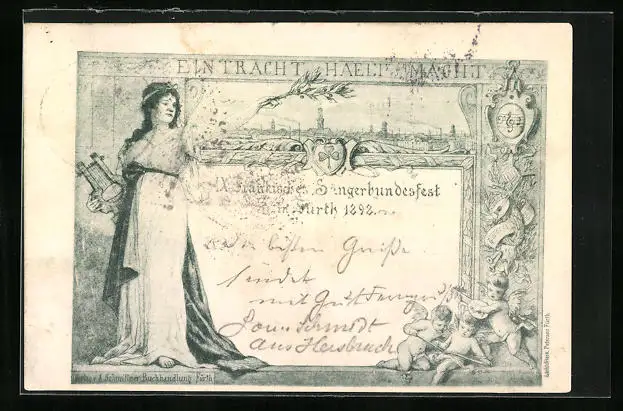 EINTRACHT HAELT MACHT
IX. Fränkisches Sängerbundesfest
in Fürth 1898.
Die besten Grüße
sendet
mit Gut
Schmidt
aus Hersbruck
Verlag v. A. Schmittner Buchhandlung Fürth
Fürth.